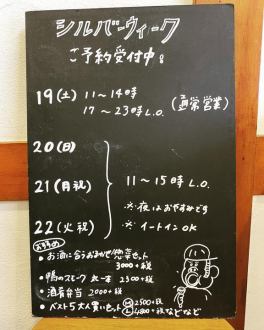 シルバーウィーク
ご予約受付中。
19(土) 11〜14時
17〜23時L.O.
(通常営業)
20(日)
21(月祝)
22(火祝)
11〜15時L.O.
※夜はおやすみです
※イートインOK
おすすめ
・お酒に合うおまかせ惣菜セット
3000+税
・鴨のスモーク 丸一本 2300+税
・酒肴弁当 2000+税
・ベスト5大人買いセット
2500+税
4800+税などなど